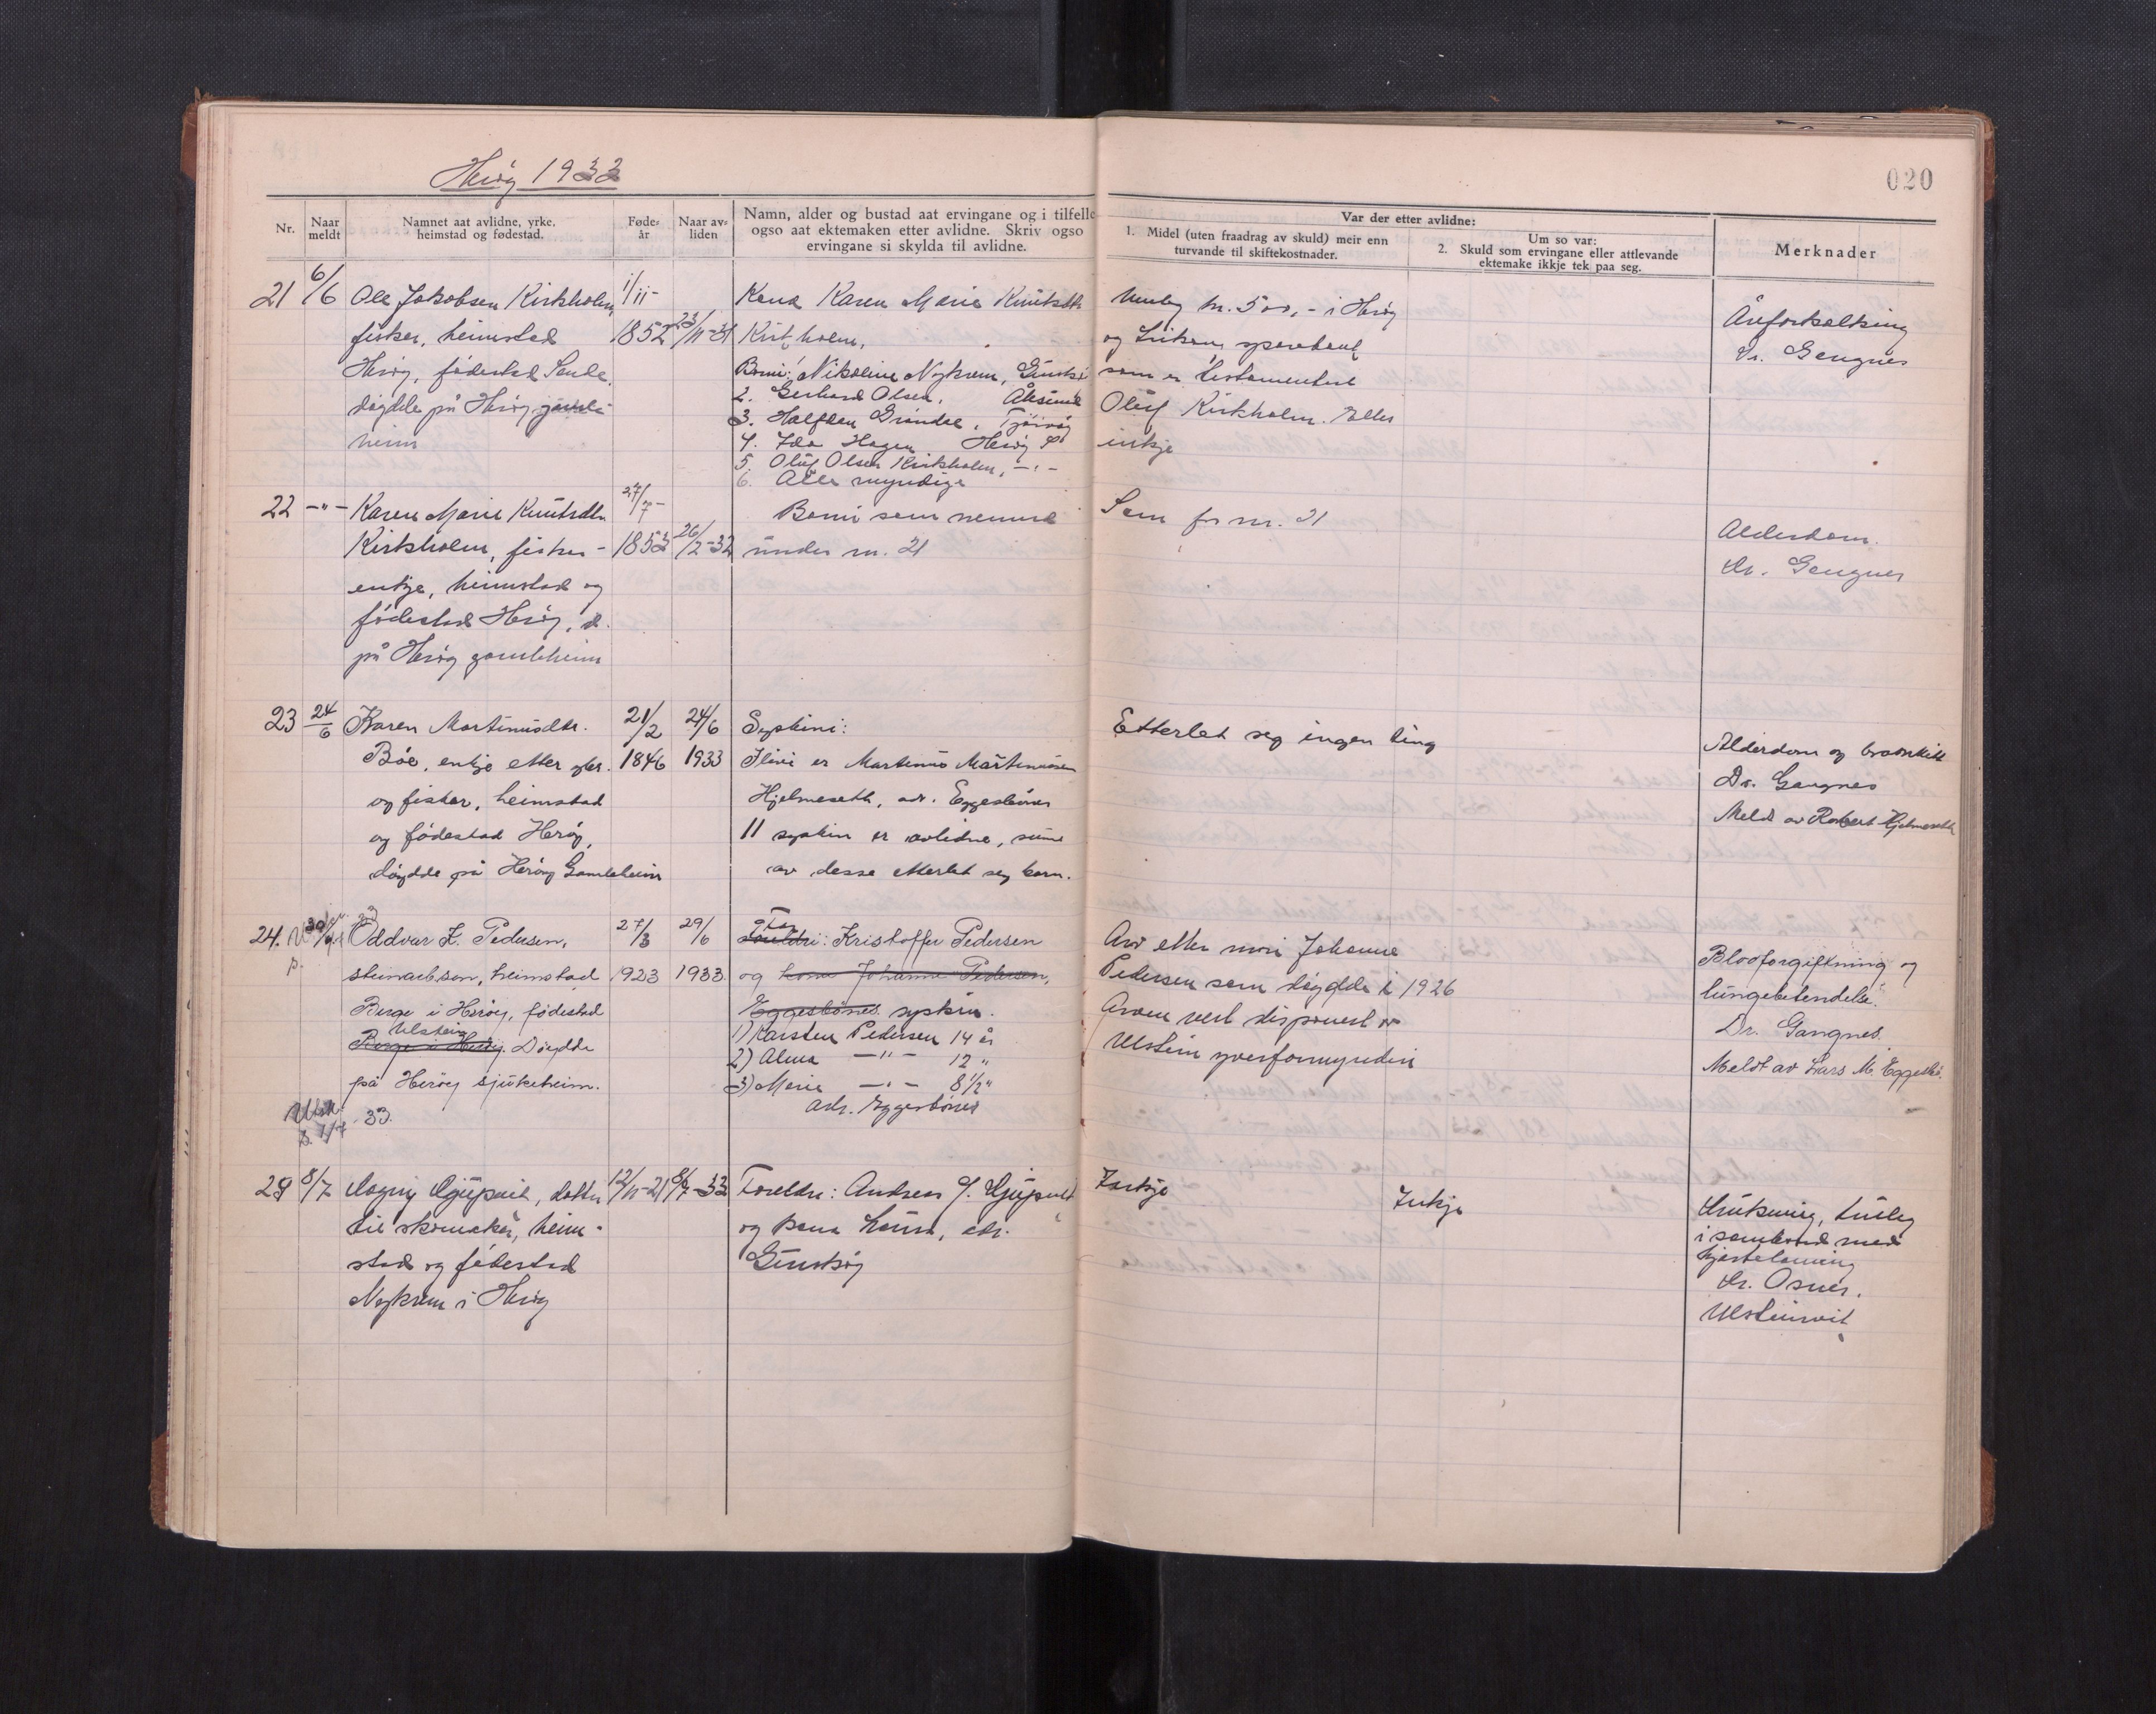 Herøy 1933
020
Nr.
Naar meldt
Namnet aat avlidne, yrke, heimstad og fødestad.
Føde-år
Naar av-liden
Namn, alder og bustad aat ervingane og i tilfelle
ogso aat ektemaken etter avlidne. Skriv ogso
ervingane si skylda til avlidne.
Var der etter avlidne:
1. Midel (uten fraadrag av skuld) meir enn
turvande til skiftekostnader.
Um so var:
2. Skuld som ervingane eller attlevande
ektemake ikkje tek paa seg.
Merknader
21 6/6 Ole Jakobsen Kirkholm,
fisker, heimstad
Herøy, fødestad Sande,
døydde på Herøy gamle-
heim
1/11-
1852
23/11-31
Kona Karen Marie Knutsdtr
Kirkholm,
Born: Nikoline Nykrem,
2. Gerhard Olsen, Ålesund
3. Halfdan Grøndal, Tjørvåg
4. Ida Hagen Herøy
5. Oluf Olsen Kirkholm, -"-
6. Alle myndige
kr. 500,- i Herøy
og sparebank
som er testamentert
Oluf Kirkholm. Elles
inkje
Åreforkalking
Dr. Gangnes
22 -"- Karen Marie Knutsdtr
Kirkholm, fisker-
enkje, heimstad og
fødestad Herøy, d.
på Herøy gamleheim
27/7-
1853
26/2-32
Borni som nemnd
under nr. 21
Som for nr. 21
Alderdom.
Dr. Gangnes
23 24/6 Karen Martinusdtr.
Bøe, enkje etter gbr.
og fisker, heimstad
og fødestad Herøy,
døydde på Herøy Gamleheim
21/2
1846
24/6
1933
Syskin:
I live er Martinus Martinussen
Hjelmeseth, adr. Eggesbønes
11 syskin er avlidne, sume
av desse etterlet seg born.
Etterlet seg ingen ting
Alderdom og
Dr. Gangnes
Meldt av Robert Hjelmeseth
24. 30/6 Oddvar K. Pedersen,
steinarb.son, heimstad
Berge i Herøy, fødestad
Ulstein
Berge i Herøy. Døydde
på Herøy sjukeheim.
27/3
1923
29/6
1933.
Far
Foreldri: Kristoffer Pedersen
og kona Johanne Pedersen,
Eggesbønes. syskin.
1) Karsten Pedersen 14 år
2) Alma -"- 12 "
3) Marie -"- 8 1/2 "
Adr. Eggesbønes
Arv etter mori Johanne
Pedersen som døydde i 1926
Arven vert disponert av
Ulstein yverformynderi
Blodforgiftning og
lungebetendelse.
Dr. Gangnes.
Meldt av Lars M. Eggesbø.
33.
8/7 Magny Djupvik, dotter
til skomaker, heim-
stad og fødestad
Nykrem i Herøy
12/11-21
Foreldre: Andreas J. Djupvik
og kona Laura, adr.
Gurskøy
Inkje
Inkje
Drukning, truleg
i samband med
hjartelaming
Dr. Osnes,
Ulsteinvik